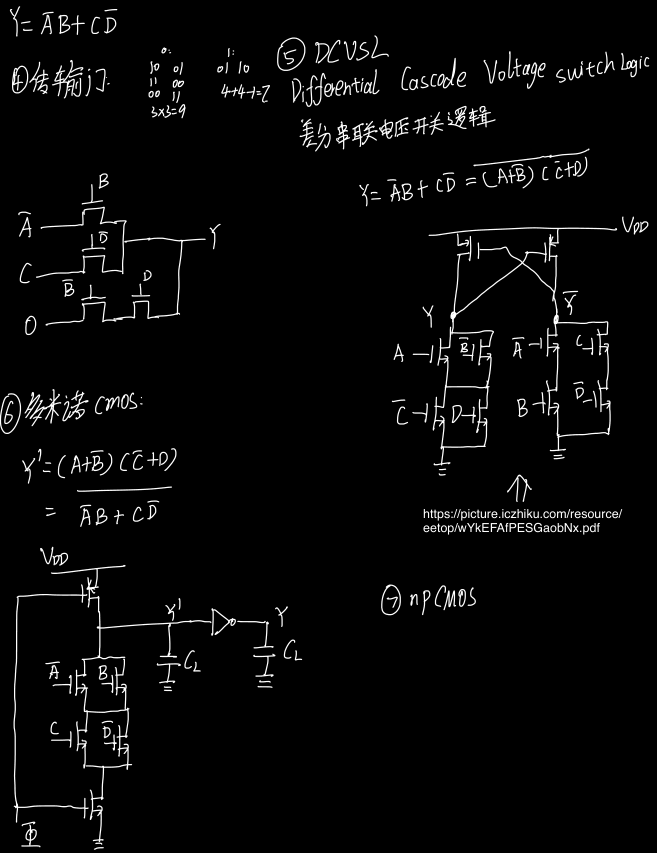 Y = A̅B + CD̅
④传输门:
0:
10 01
11 00
00 11
3×3=9
1:
01 10
4+4-1=7
⑤ DCVSL
Differential Cascade Voltage switch Logic
差分串联电压开关逻辑
Y = A̅B + CD̅ = (A+B̅)(C̅+D)
B
A̅
D̅
C
Y
B̅
D
0
VDD
Y
Y̅
A
B̅
A̅
C
C̅
D
B
D̅
https://picture.iczhiku.com/resource/
eetop/wYkEFAfPESGaobNx.pdf
⑥多米诺CMOS:
Y' = (A+B̅)(C̅+D)
= A̅B + CD̅
VDD
Y'
Y
CL
CL
A̅
B
C
D̅
Φ
⑦ np CMOS